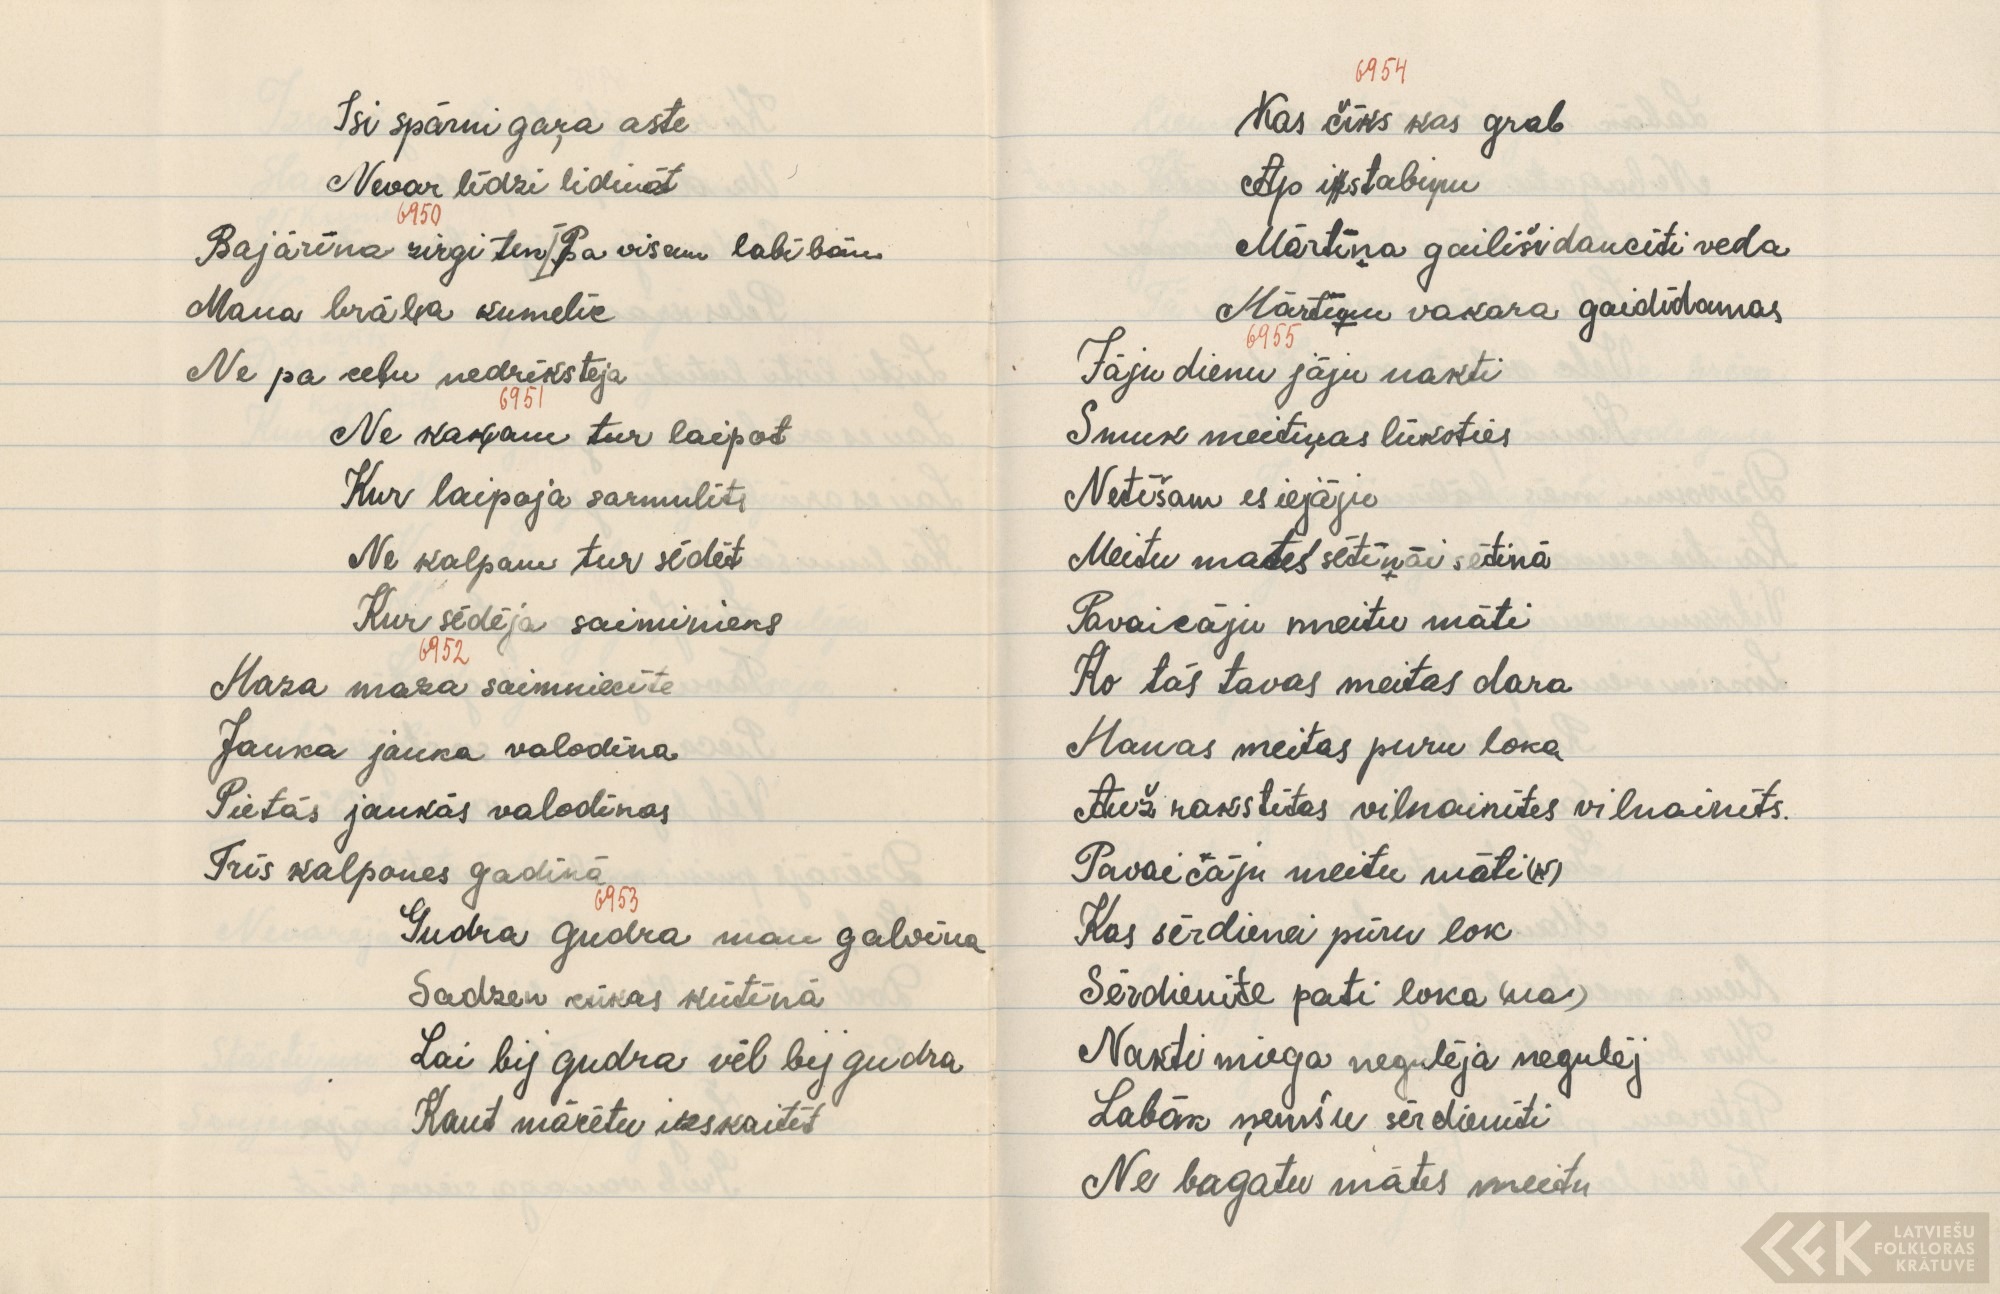 Isi spārni gaŗa aste
Nevar līdzi lidināt
6950
Bajārīna zirgi ten/Pa visam labībām
Mana brāļa kumeliņ
Ne pa ceļu nedrīksteja
6951
Ne kaķam tur laipot
Kur laipoja sarmulīts
Ne kalpam tur sēdēt
Kur sēdēja saiminieks
6952
Maza maza saimniecīte
Jauka jauka valodīna
Pietās jaukās valodīnas
Trīs kalpones gadīnā
6953
Gudra gudra man galvīna
Sadzen cūkas kūtīnā
Lai bij gudra vēl bij gudra
Kaut mācētu izskaitīt
6954
Kas čīks kas grab
Ap istabiņu
Mārtiņa gailīši danciti veda
Mārtiņu vakara gaidīdamas
6955
Jāju dienu jāju nakti
Smuk meitiņas lūkoties
Netīšam es iejāju
Meitu mates sētiņāi sētinā
Pavaicāju meitu māti
Ko tās tavas meitas dara
Manas meitas puru loka
Auž rakstītas vilnainītes vilnainīts.
Pavaičāju meitu māti(k)
Kas sērdienei pūru lok
Sērdienīte pati loka (na)
Nakti miega negulēja negulēj
Labāk ņemšu sērdienīti
Ne bagatu mātes meitu
LATVIEŠU
FOLKLORAS
KRĀTUVE